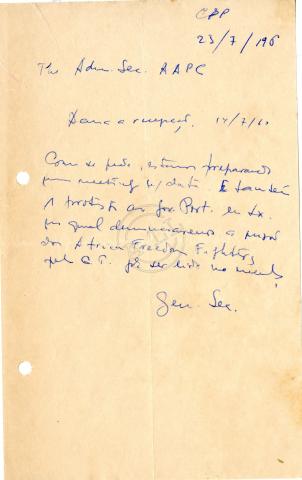 CPP
23/7/196
The Adm. Sec. AAPC
Dando a recepção, 14/7/6
Com se pede, estamos preparando
um meeting p/ data. E também
1 protesto ao Gov. Port. em Lx.
no qual denunciaremos a
dos African Freedom Fighters,
pelo ser lido no meeting
Gen. Sec.